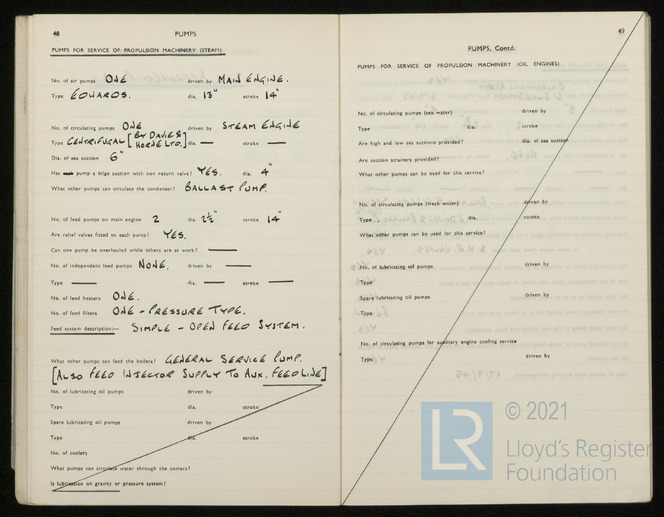 48 PUMPS
PUMPS FOR SERVICE OF PROPULSION MACHINERY (STEAM)
No. of air pumps ONE driven by MAIN ENGINE.
Type EDWARDS. dia. 13" stroke 14"
No. of circulating pumps ONE driven by STEAM ENGINE
Type CENTRIFUGAL [BY DAVIE & HORNE LTD.] dia. — stroke —
Dia. of sea suction 6"
Has pump a bilge suction with non return valve? YES. dia. 4"
What other pumps can circulate the condenser? BALLAST PUMP.
No. of feed pumps on main engine 2 dia. 2½" stroke 14"
Are relief valves fitted to each pump? YES.
Can one pump be overhauled while others are at work? —
No. of independent feed pumps NONE. driven by —
Type — dia. — stroke —
No. of feed heaters ONE.
No. of feed filters ONE - PRESSURE TYPE.
Feed system description:— SIMPLE - OPEN FEED SYSTEM.
What other pumps can feed the boilers? GENERAL SERVICE PUMP.
[ALSO FEED INJECTOR SUPPLY TO AUX. FEED LINE]
No. of lubricating oil pumps driven by
Type dia. stroke
Spare lubricating oil pumps driven by
Type dia. stroke
No. of coolers
What pumps can circulate water through the coolers?
Is lubrication on gravity or pressure system?
49
PUMPS, Contd.
PUMPS FOR SERVICE OF PROPULSION MACHINERY (OIL ENGINES)
No. of circulating pumps (sea water) driven by
Type dia. stroke
Are high and low sea suctions provided? dia. of sea suction
Are suction strainers provided?
What other pumps can be used for this service?
No. of circulating pumps (fresh water) driven by
Type dia. stroke
What other pumps can be used for this service?
No. of lubricating oil pumps driven by
Type
Spare lubricating oil pumps driven by
Type
No. of circulating pumps for auxiliary engine cooling service
Type driven by
LR © 2021
Lloyd's Register
Foundation